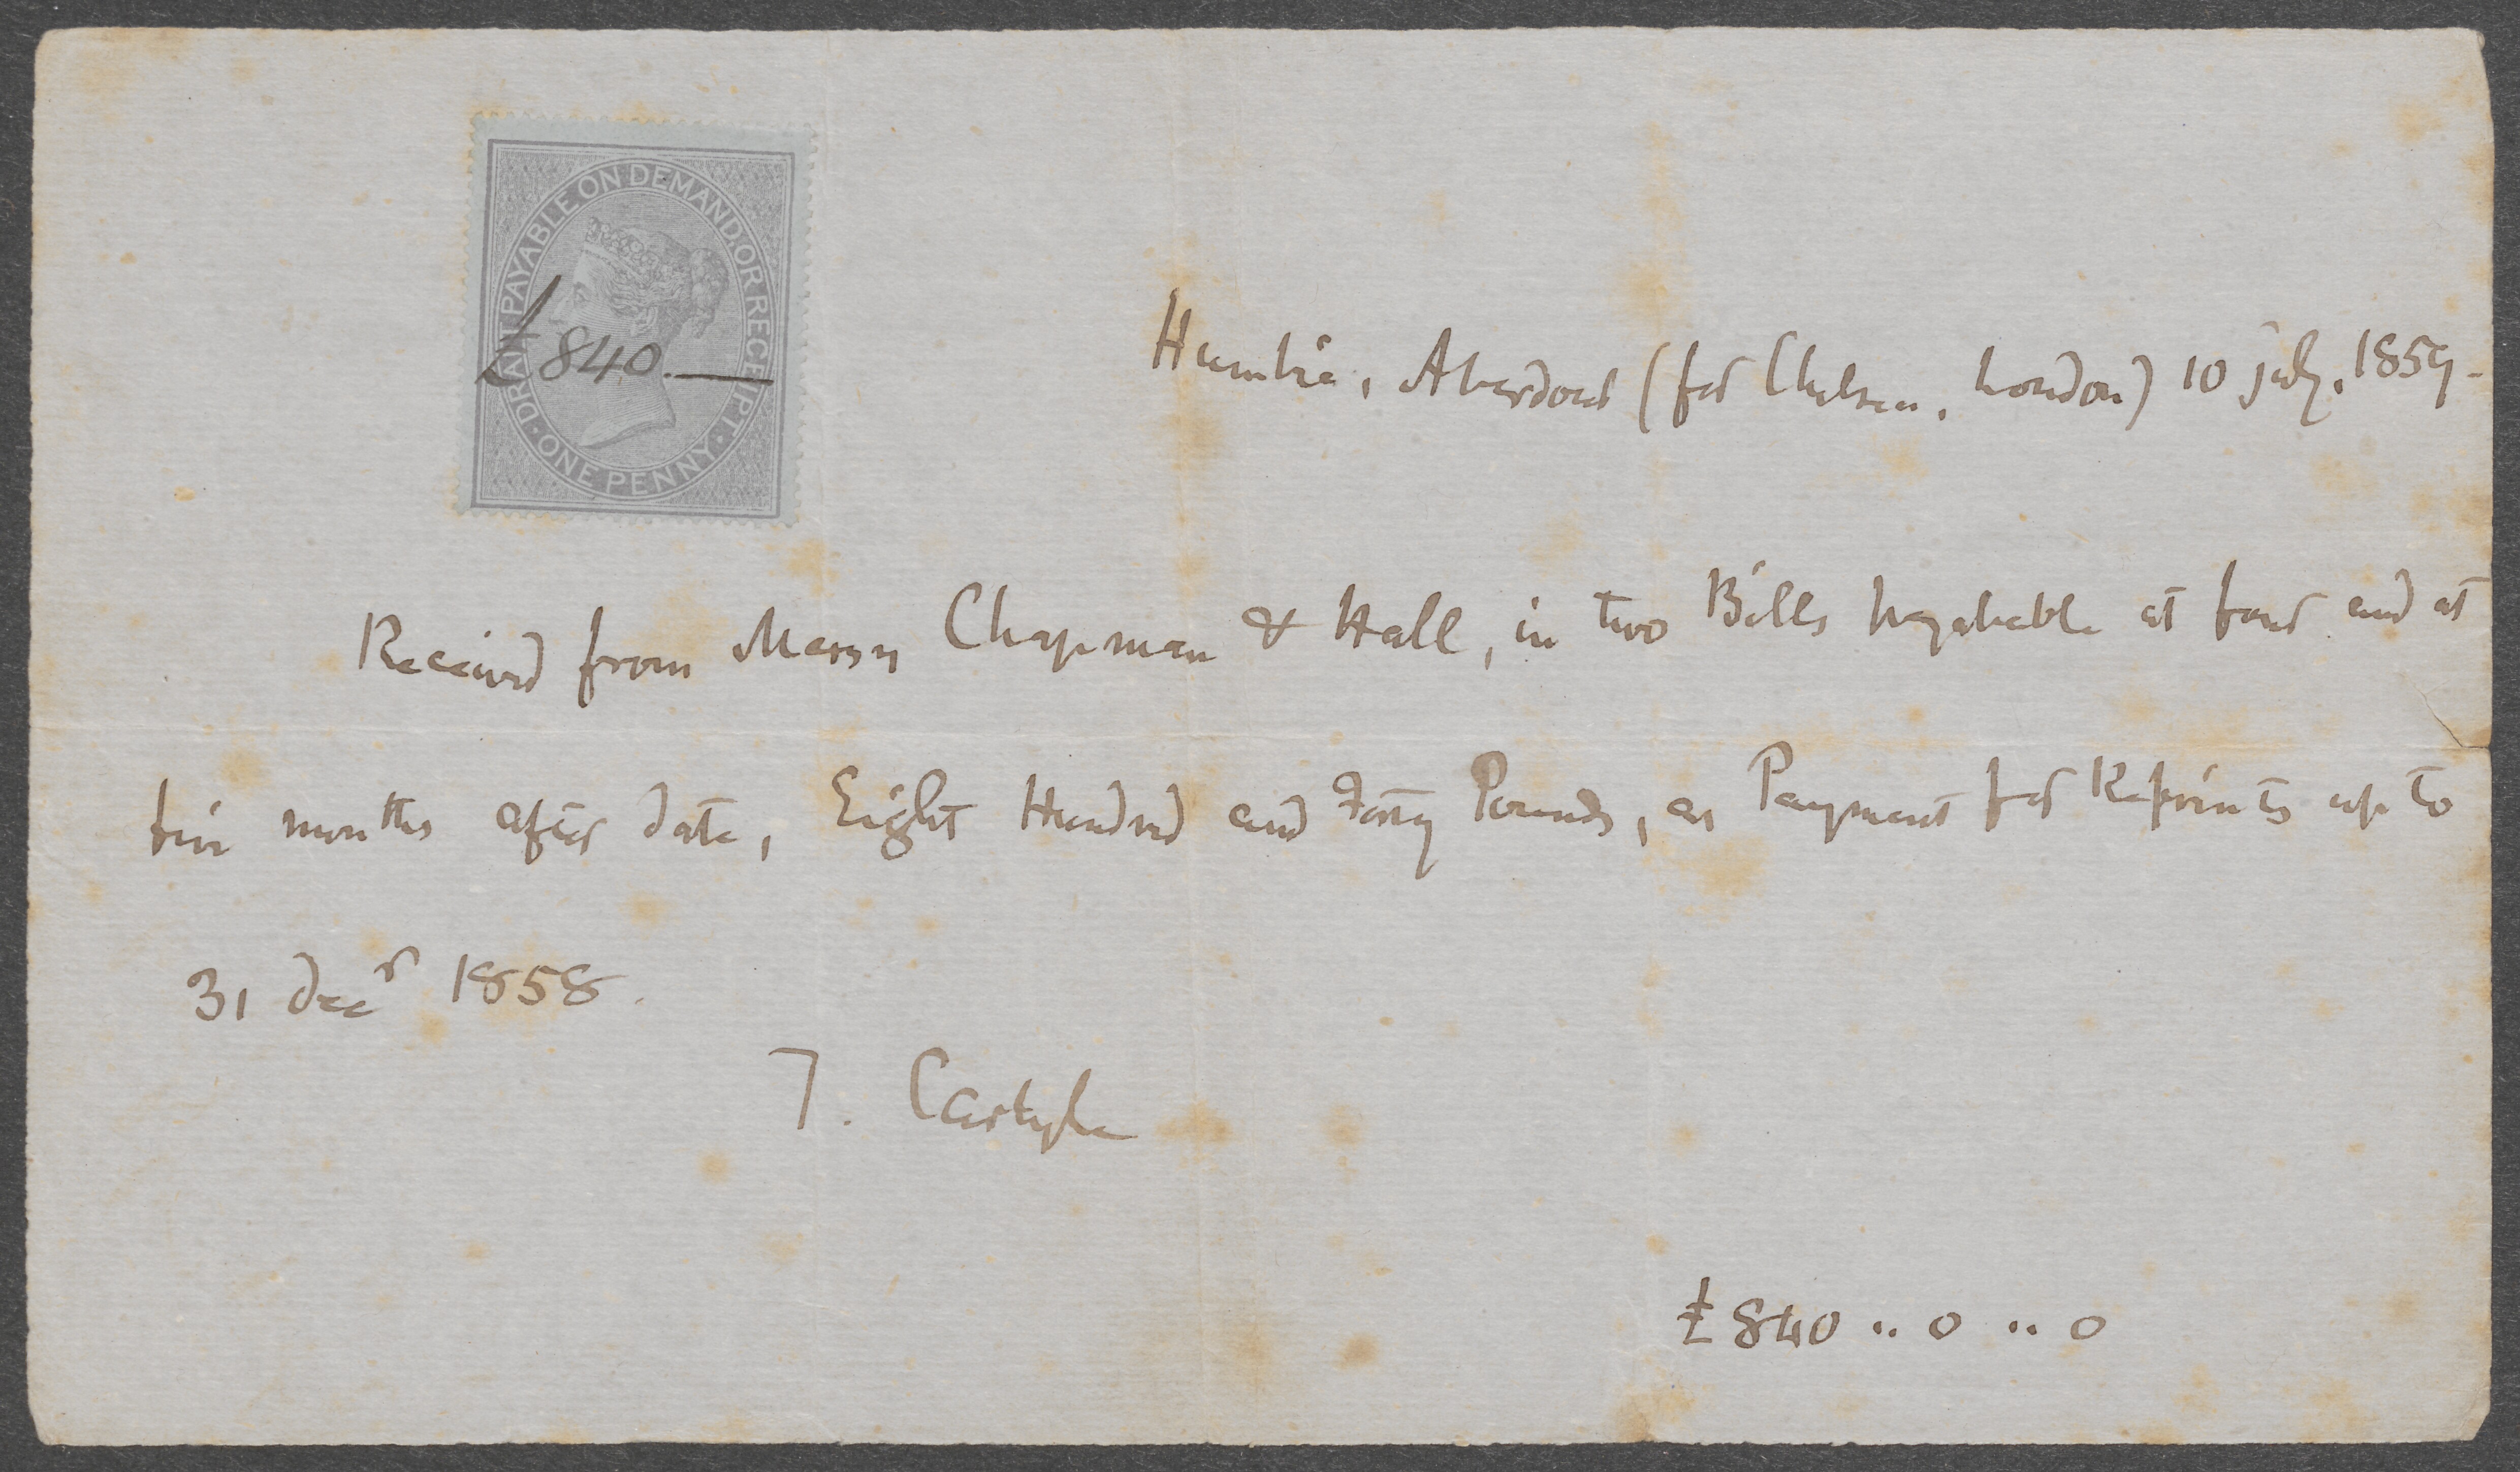 DRAFT PAYABLE ON DEMAND. OR RECEIPT.
ONE PENNY
£840.—
Humbie, Aberdour (for Chelsea, London) 10 july, 1859 -
Received from Messrs Chapman & Hall, in two Bills payable at four and at
months after date, Eight Hundred and Forty Pounds, as Payment for Reprints up to
31 decr 1858.
T. Carlyle
£840 .. 0 .. 0